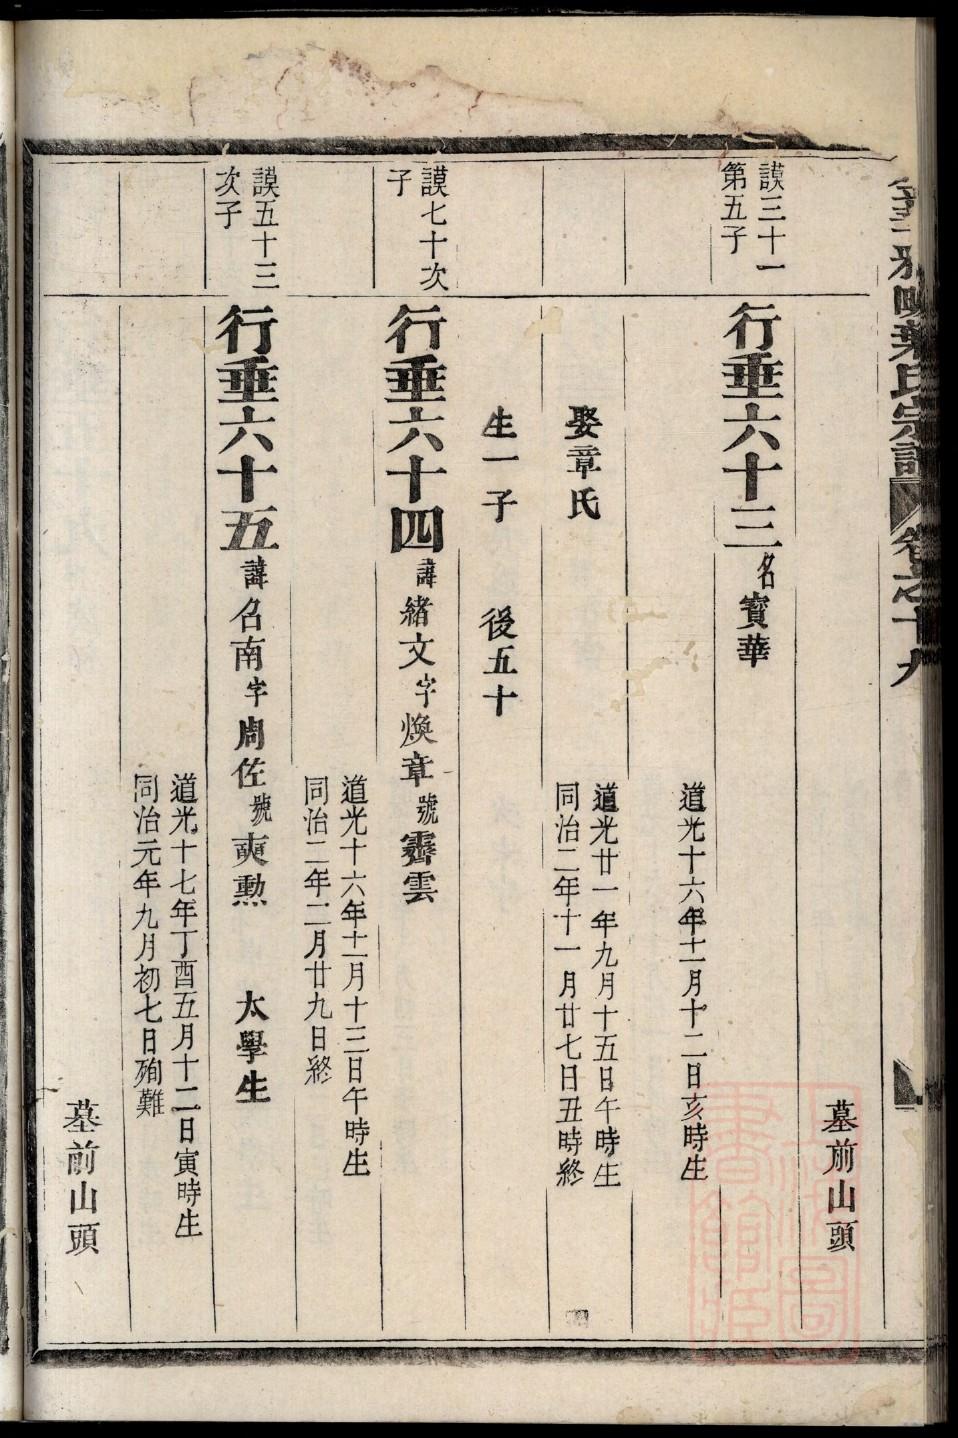 葉氏宗譜 卷之十九
墓前山頭
謨三十一
第五子
行垂六十三名寶華
道光十六年十一月十二日亥時生
娶章氏
道光廿一年九月十五日午時生
同治二年十一月廿七日丑時終
生一子 後五十
謨七十次
子
行垂六十四諱緒文字煥章號霽雲
道光十六年十一月十三日午時生
同治二年二月廿九日終
謨五十三
次子
行垂六十五諱召南字周佐號奭勲 太學生
道光十七年丁酉五月十二日寅時生
同治元年九月初七日殉難
墓前山頭